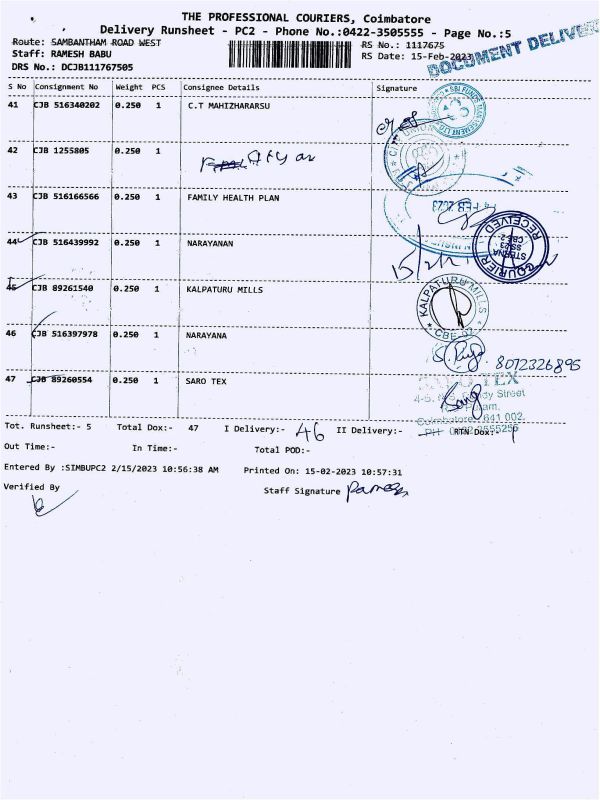 THE PROFESSIONAL COURIERS, Coimbatore
Delivery Runsheet - PC2 - Phone No.:0422-3505555 - Page No.:5
Route: SAMBANTHAM ROAD WEST
RS No.: 1117675
Staff: RAMESH BABU
RS Date: 15-Feb-2023
DOCUMENT DELIVE
DRS No.: DCJB111767505
S No Consignment No Weight PCS Consignee Details Signature
41 CJB 516340202 0.250 1 C.T MAHIZHARARSU
SBI FUNDS MANAGEMENT LTD
42 CJB 1255805 0.250 1
43 CJB 516166566 0.250 1 FAMILY HEALTH PLAN
FEB 2023
44 CJB 516439992 0.250 1 NARAYANAN
15/2/
RECEIVED
CBE-2
STERNA
COURIER
45 CJB 89261540 0.250 1 KALPATURU MILLS
KALPATURU MILLS
CBE-02
46 CJB 516397978 0.250 1 NARAYANA
8072326895
47 CJB 89260554 0.250 1 SARO TEX
TEX
Street
Coimbatore 641 002.
Tot. Runsheet:- 5 Total Dox:- 47 I Delivery:- 46 II Delivery:- RTN Dox:- 1
Out Time:- In Time:- Total POD:-
Entered By :SIMBUPC2 2/15/2023 10:56:38 AM Printed On: 15-02-2023 10:57:31
Verified By
Staff Signature Ramesh